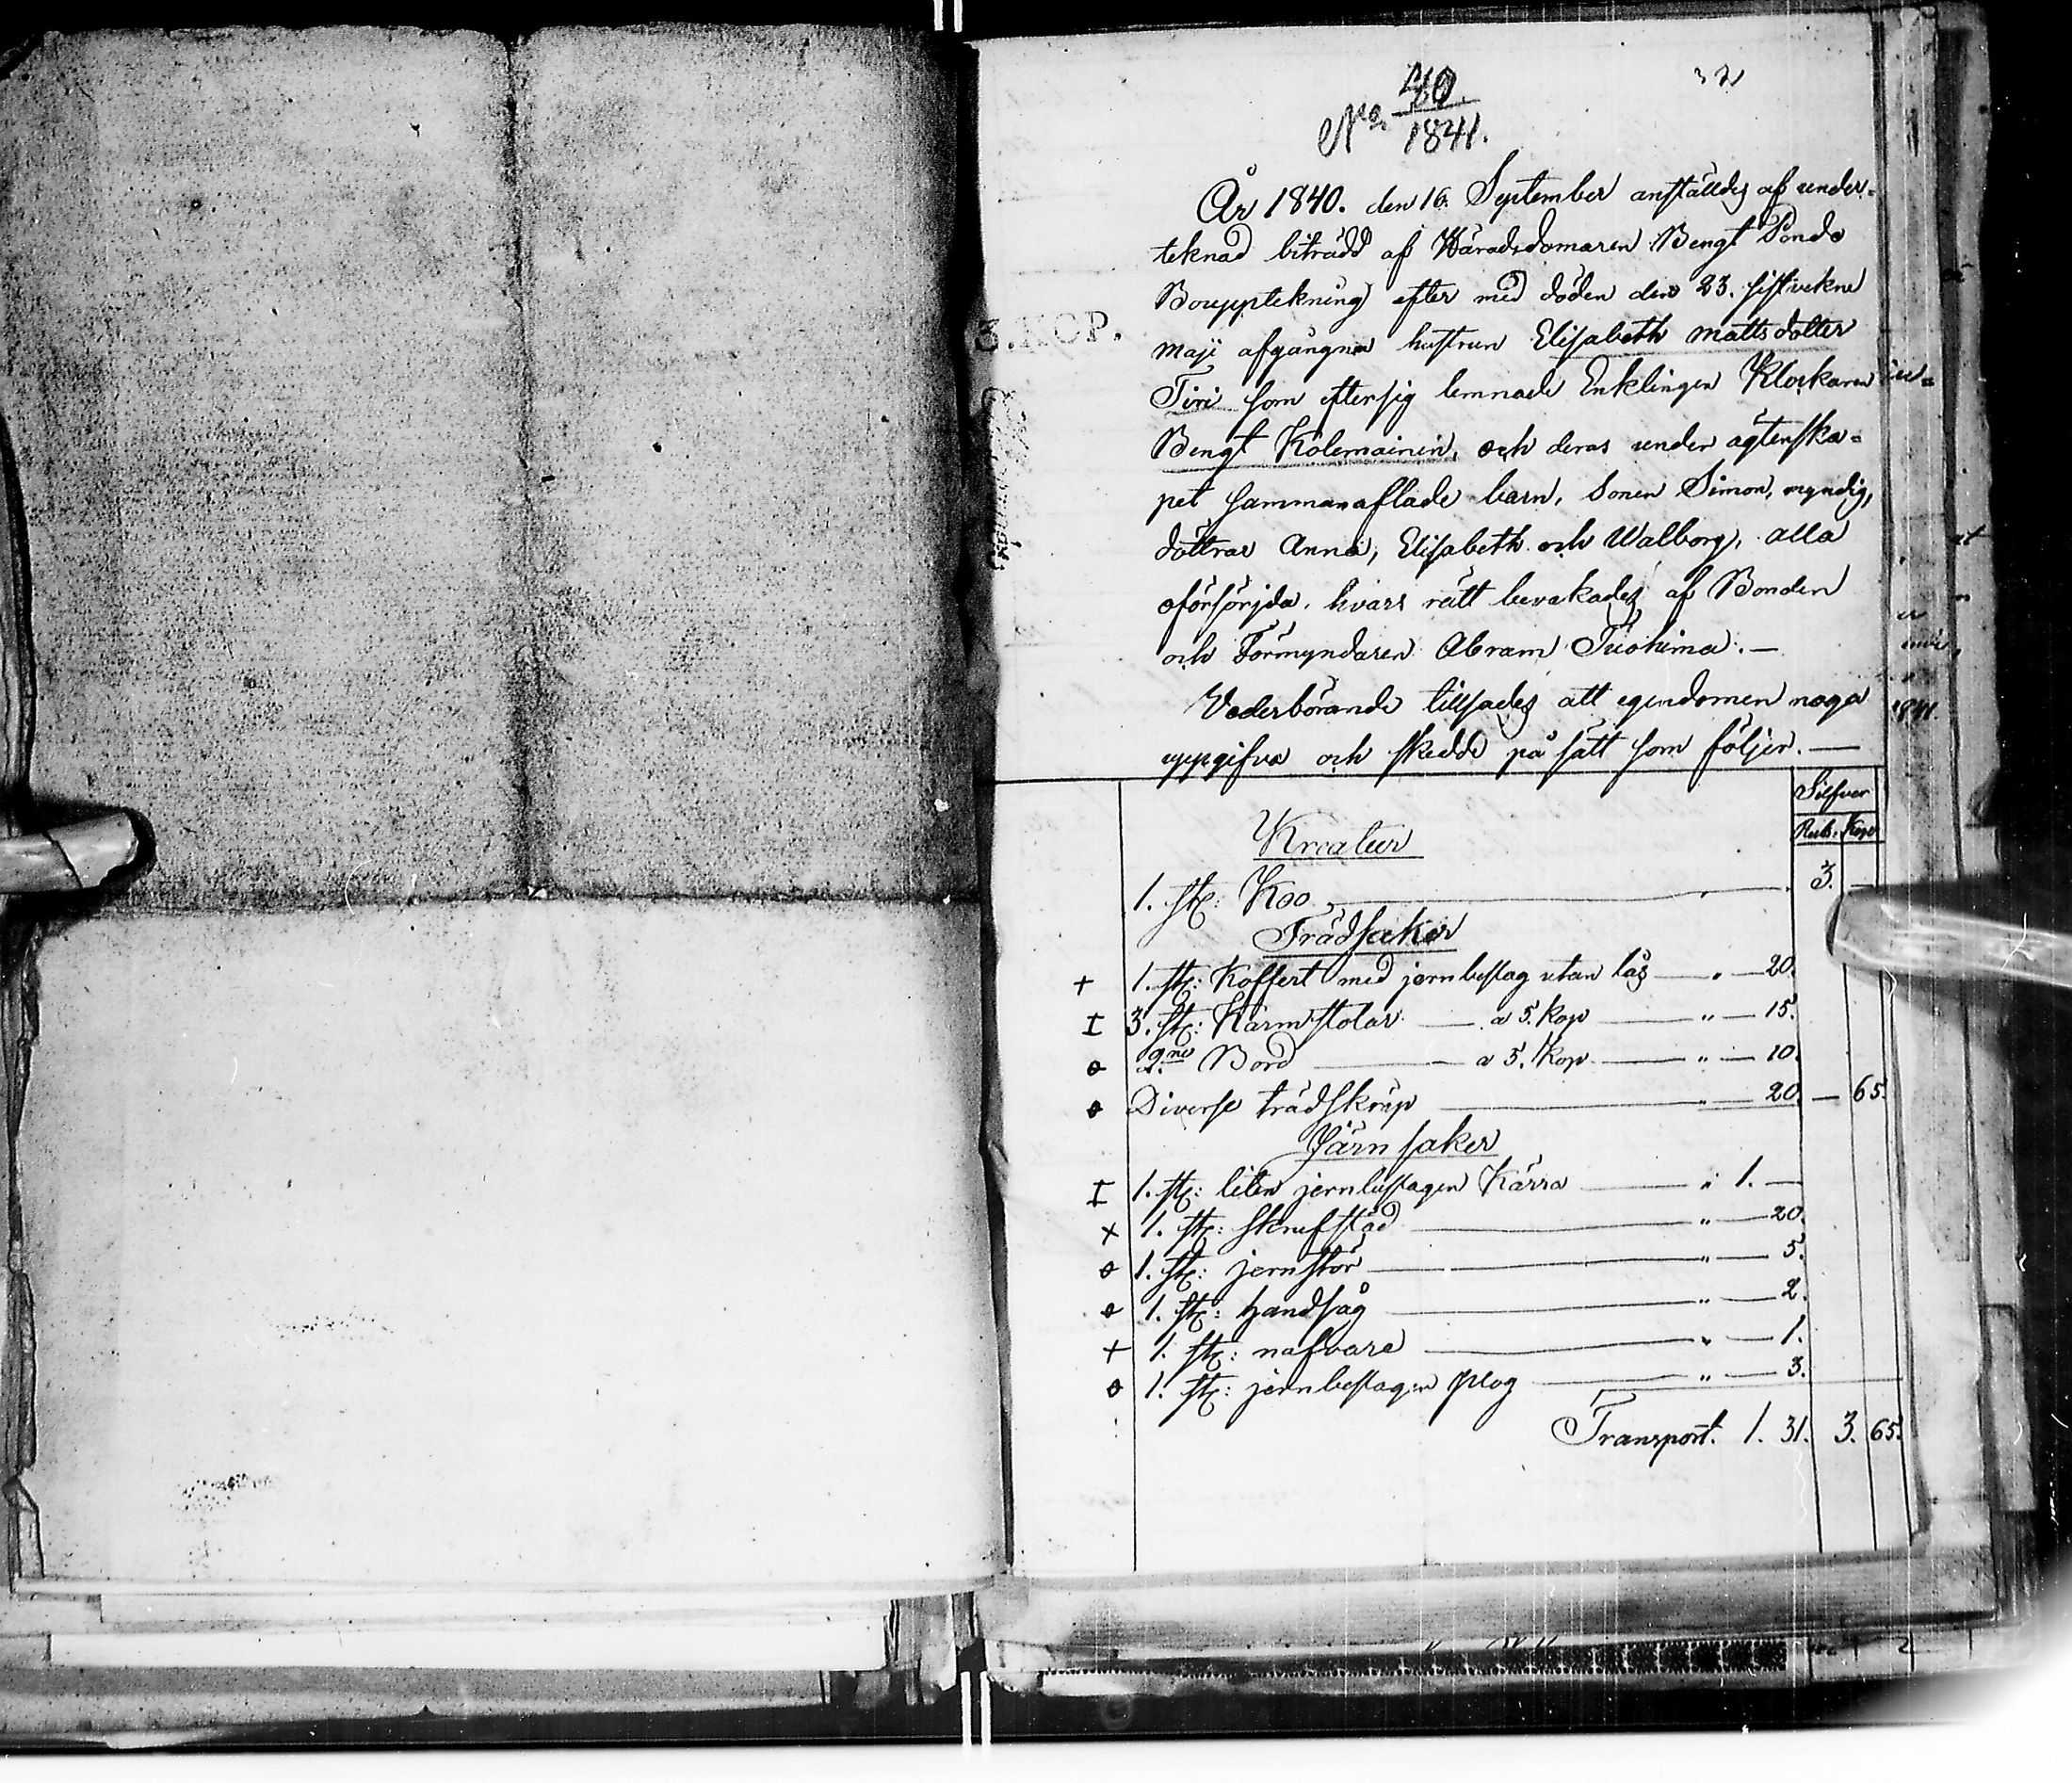 32
No. 40
1841.
År 1840. den 16. September anställdes af under-
teknad biträdd af Häradsdomaren Bengt Pondo
Bouppteckning efter med döden den 23. sistvekne
Maji afgångna hustrun Elisabeth Mattsdotter
Tiri som efter sig lemnade Enklingen Klockaren
Bengt Kolemainen, och deras under ägtenska-
pet sammanaflade barn, Sonen Simon, myndig,
döttrar Anna, Elisabeth och Walborg, alla
oförsörjda, hvars rätt bevakades af Bonden
och Förmyndaren Abram Tuohima. —
Vederbörande tillsades att egendomen noga
uppgifva och skedde på sätt som följer. —
3.KOP.
Silfver
Rub. Kop
Kreatur
1. st: Koo — 3. —
Trädsaker
+ 1. st: Koffert med jernbeslag utan lås — " — 20.
I 3. st: Karmstolar — a 5. kop — " — 15.
o 2ne Bord — a 5. kop — " — 10.
o Diverse trädskräp — " — 20. — 65.
Järnsaker
I 1. st: liten jernbeslagen Kärra — " 1. —
+ 1. st: skrufstäd — " — 20.
o 1. st: jernstör — " — 5.
o 1. st: handsåg — " — 2.
+ 1. st: nafvare — " — 1.
o 1. st: jernbeslagen plog — " — 3.
Transport. 1. 31. 3. 65.